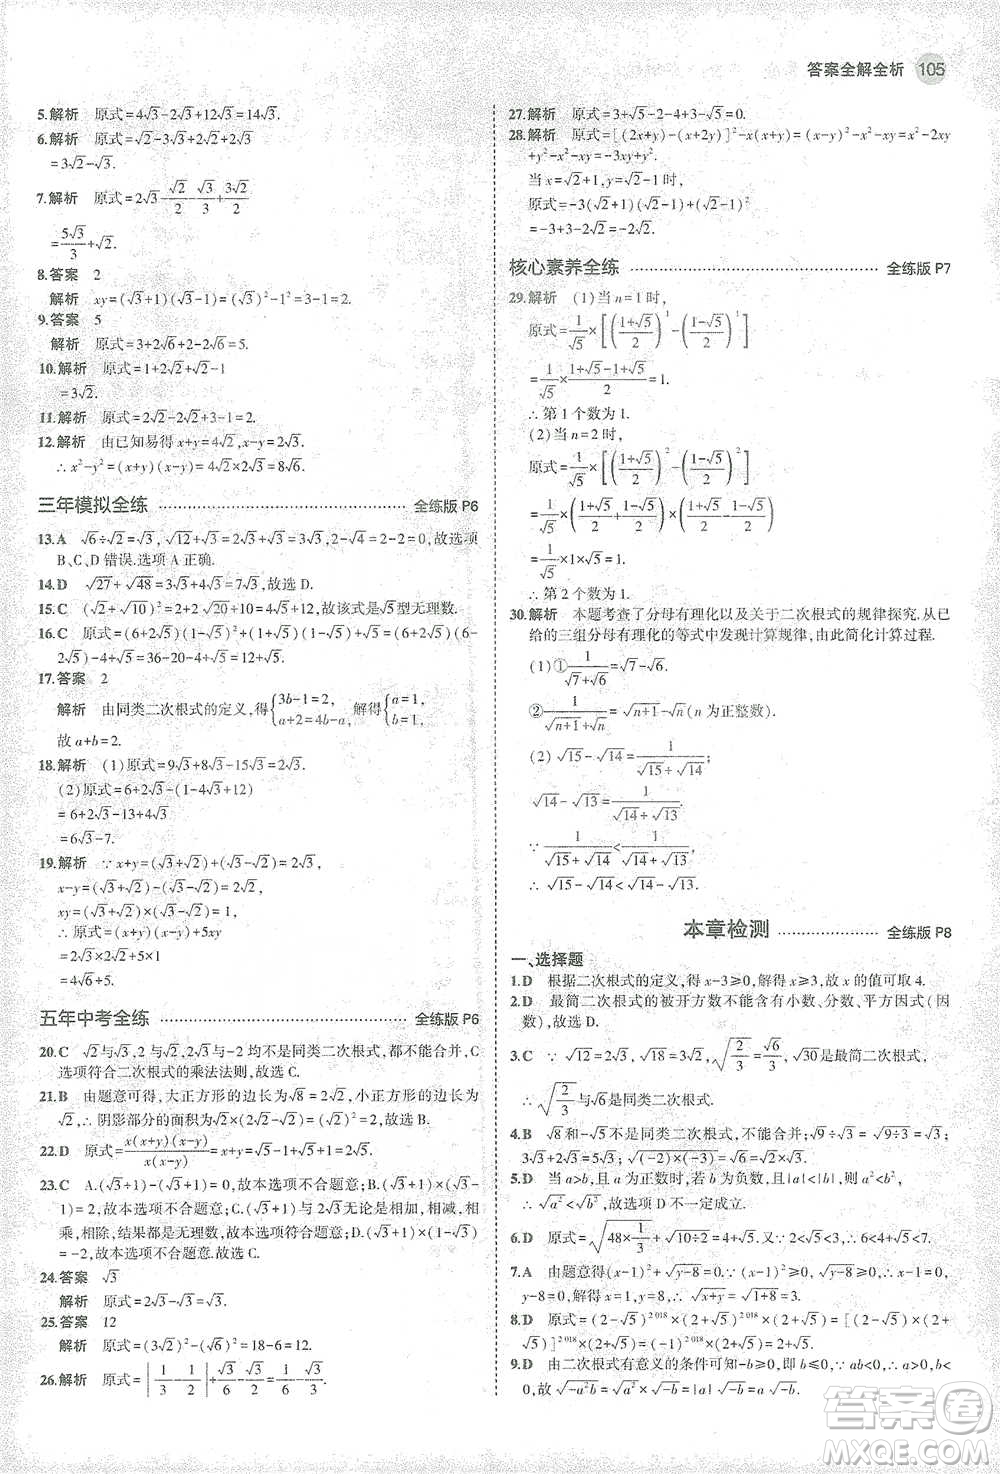 答案全解全析 105
5.解析 原式=4√3-2√3+12√3=14√3.
6.解析 原式=√2-3√2+5√2
=3√2.
7.解析 原式=2√3-√2/2-√3/3+3√2/2
=5√3/3+√2.
8.答案 2
解析 xy=(√3+1)(√3-1)=(√3)²-1²=3-1=2.
9.答案 5
解析 原式=3+2√6+2-2√6=5.
10.解析 原式=1+2√2+√2-1
=3√2.
11.解析 原式=2√2-2√2+3-1=2.
12.解析 由已知易得 x+y=4√2,x-y=2√3.
∴x²-y²=(x+y)(x-y)=4√2×2√3=8√6.
三年模拟全练 全练版 P6
13.A √6÷√2=√3,√12+√3=2√3+√3=3√3,2-√4=2-2=0,故选项
B、C、D 错误.选项 A 正确.
14.D √27+√48=3√3+4√3=7√3,故选 D.
15.C (√2+√10)²=2+2√20+10=12+4√5,故该式是√5型无理数.
16.C 原式=(6+2√5)(6-2√5)²+(1+√5)(1-√5)=(6+2√5)(6-
2√5)-4=36-20-4=16-4=12,故选 C.
17.答案 2
解析 由同类二次根式的定义,得{3b-1=2, a+2=4b-a, 解得{a=1, b=1,
故 a+b=2.
18.解析 (1)原式=9√3+8√3-2√3=15√3.
(2)原式=6-(1-4√3+12)
=6+2√3-13+4√3
=6√3-7.
19.解析 ∵x+y=(√3+√2)+(√3-√2)=2√3,
x-y=(√3+√2)-(√3-√2)=2√2,
xy=(√3+√2)×(√3-√2)=1,
∴原式=(x+y)(x-y)+2xy(x+y)
=2√3×2√2+2×1×2√3
=4√6+4√3.
五年中考全练 全练版 P6
20.C √2与√3,2与√3,√2与-2 均不是同类二次根式,都不能合并,C
选项符合二次根式的乘法法则,故选 C.
21.B 由题意可得,大正方形的边长为√8=2√2,小正方形的边长为
√2,∴阴影部分的面积为√2×(2√2-√2)=√2×√2=2,故选 B.
22.D 原式=x(x+y)(x-y)/x(x-y)=x+y=√5-1+√5+1=2√5,故选 D.
23.C A.(√3+1)-(√3+1)=0,故本选项不合题意;B.(√3+1)×(√3-
1)=2,故本选项不合题意;C.(√3+1)与2√3无论是相加,相减,相
乘,相除,结果都是无理数,故本选项符合题意;D.(√3+1)×(1-√3)
=-2,故本选项不合题意.故选 C.
24.答案 √3
解析 原式=2√3-√3=√3.
25.答案 12
解析 原式=(3√2)²-(√6)²=18-6=12.
26.解析 原式=|1/3-1/2|×√6-√3/3-√3/2=√6/6-5√3/6.
27.解析 原式=3+√5-2-4+3-√5=0.
28.解析 原式=[(2x+y)-(x+2y)]²-x(x+y)=(x-y)²-x²-xy=x²-2xy
+y²-x²-xy=-3xy+y².
当 x=√2+1,y=√2-1时,
原式=-3(√2+1)(√2-1)+(√2-1)²
=-3+3-2√2=-2√2.
核心素养全练 全练版 P7
29.解析 (1)当 n=1 时,
原式=1/√5×[((1+√5)/2)¹-((1-√5)/2)¹]
=1/√5×(1+√5-1+√5)/2=1.
∴第 1 个数为 1.
(2)当 n=2 时,
原式=1/√5×[((1+√5)/2)²-((1-√5)/2)²]
=1/√5×((1+√5)/2+(1-√5)/2)((1+√5)/2-(1-√5)/2)
=1/√5×1×√5=1.
∴第 2 个数为 1.
30.解析 本题考查了分母有理化以及关于二次根式的规律探究.从已
给的三组分母有理化的等式中发现计算规律,由此简化计算过程.
(1)①1/(√7+√6)=√7-√6.
②1/(√(n+1)+√n)=√(n+1)-√n(n 为正整数).
(2)√15-√14=1/(√15+√14);
√14-√13=1/(√14+√13).
∵1/(√15+√14)<1/(√14+√13),
∴√15-√14<√14-√13.
本章检测 全练版 P8
一、选择题
1.D 根据二次根式的定义,得 x-3≥0,解得 x≥3,故 x 的值可取 4.
2.D 最简二次根式的被开方数不能含有小数、分数、平方因式(因
数),故选 D.
3.C ∵√12=2√3,√18=3√2,√(2/3)=√6/3,√30是最简二次根式,
∴√(2/3)与√6是同类二次根式.
4.B √8和-√5不是同类二次根式,不能合并;√9÷√3=√(9÷3)=√3;
3√5×2√3=6√15;√((-2)×(-3))=√6.故选 B.
5.D 当 a>b,且 a 为正数时,若 b 为负数,则有可能 |a|<|b|,
∴√a²<√b²,故选项 D 不一定成立.
6.D 原式=√(48×1/3)+√(10÷2)=4+√5.又∵2<√5<3,∴6<4+√5<7.
7.A 由题意得(x-1)²+√(y-8)=0,∵(x-1)²≥0,√(y-8)≥0,∴x-1=0,
y-8=0.∴x=1,y=8.∴√(x+y)=√(1+8)=3.故选 A.
8.D 原式=(2-√5)²⁰¹⁸×(2+√5)²⁰¹⁸×(2+√5)=[(2-√5)×(2+
√5)]²⁰¹⁸×(2+√5)=(-1)²⁰¹⁸×(2+√5)=2+√5.故选 D.
9.D 由二次根式有意义的条件可知-b≥0,即 b≤0.∵ab>0,∴a<
0,故√(-a²b)=√a²·√-b=|a|√-b=-a√-b.故选 D.
答案圈
MXQE.COM